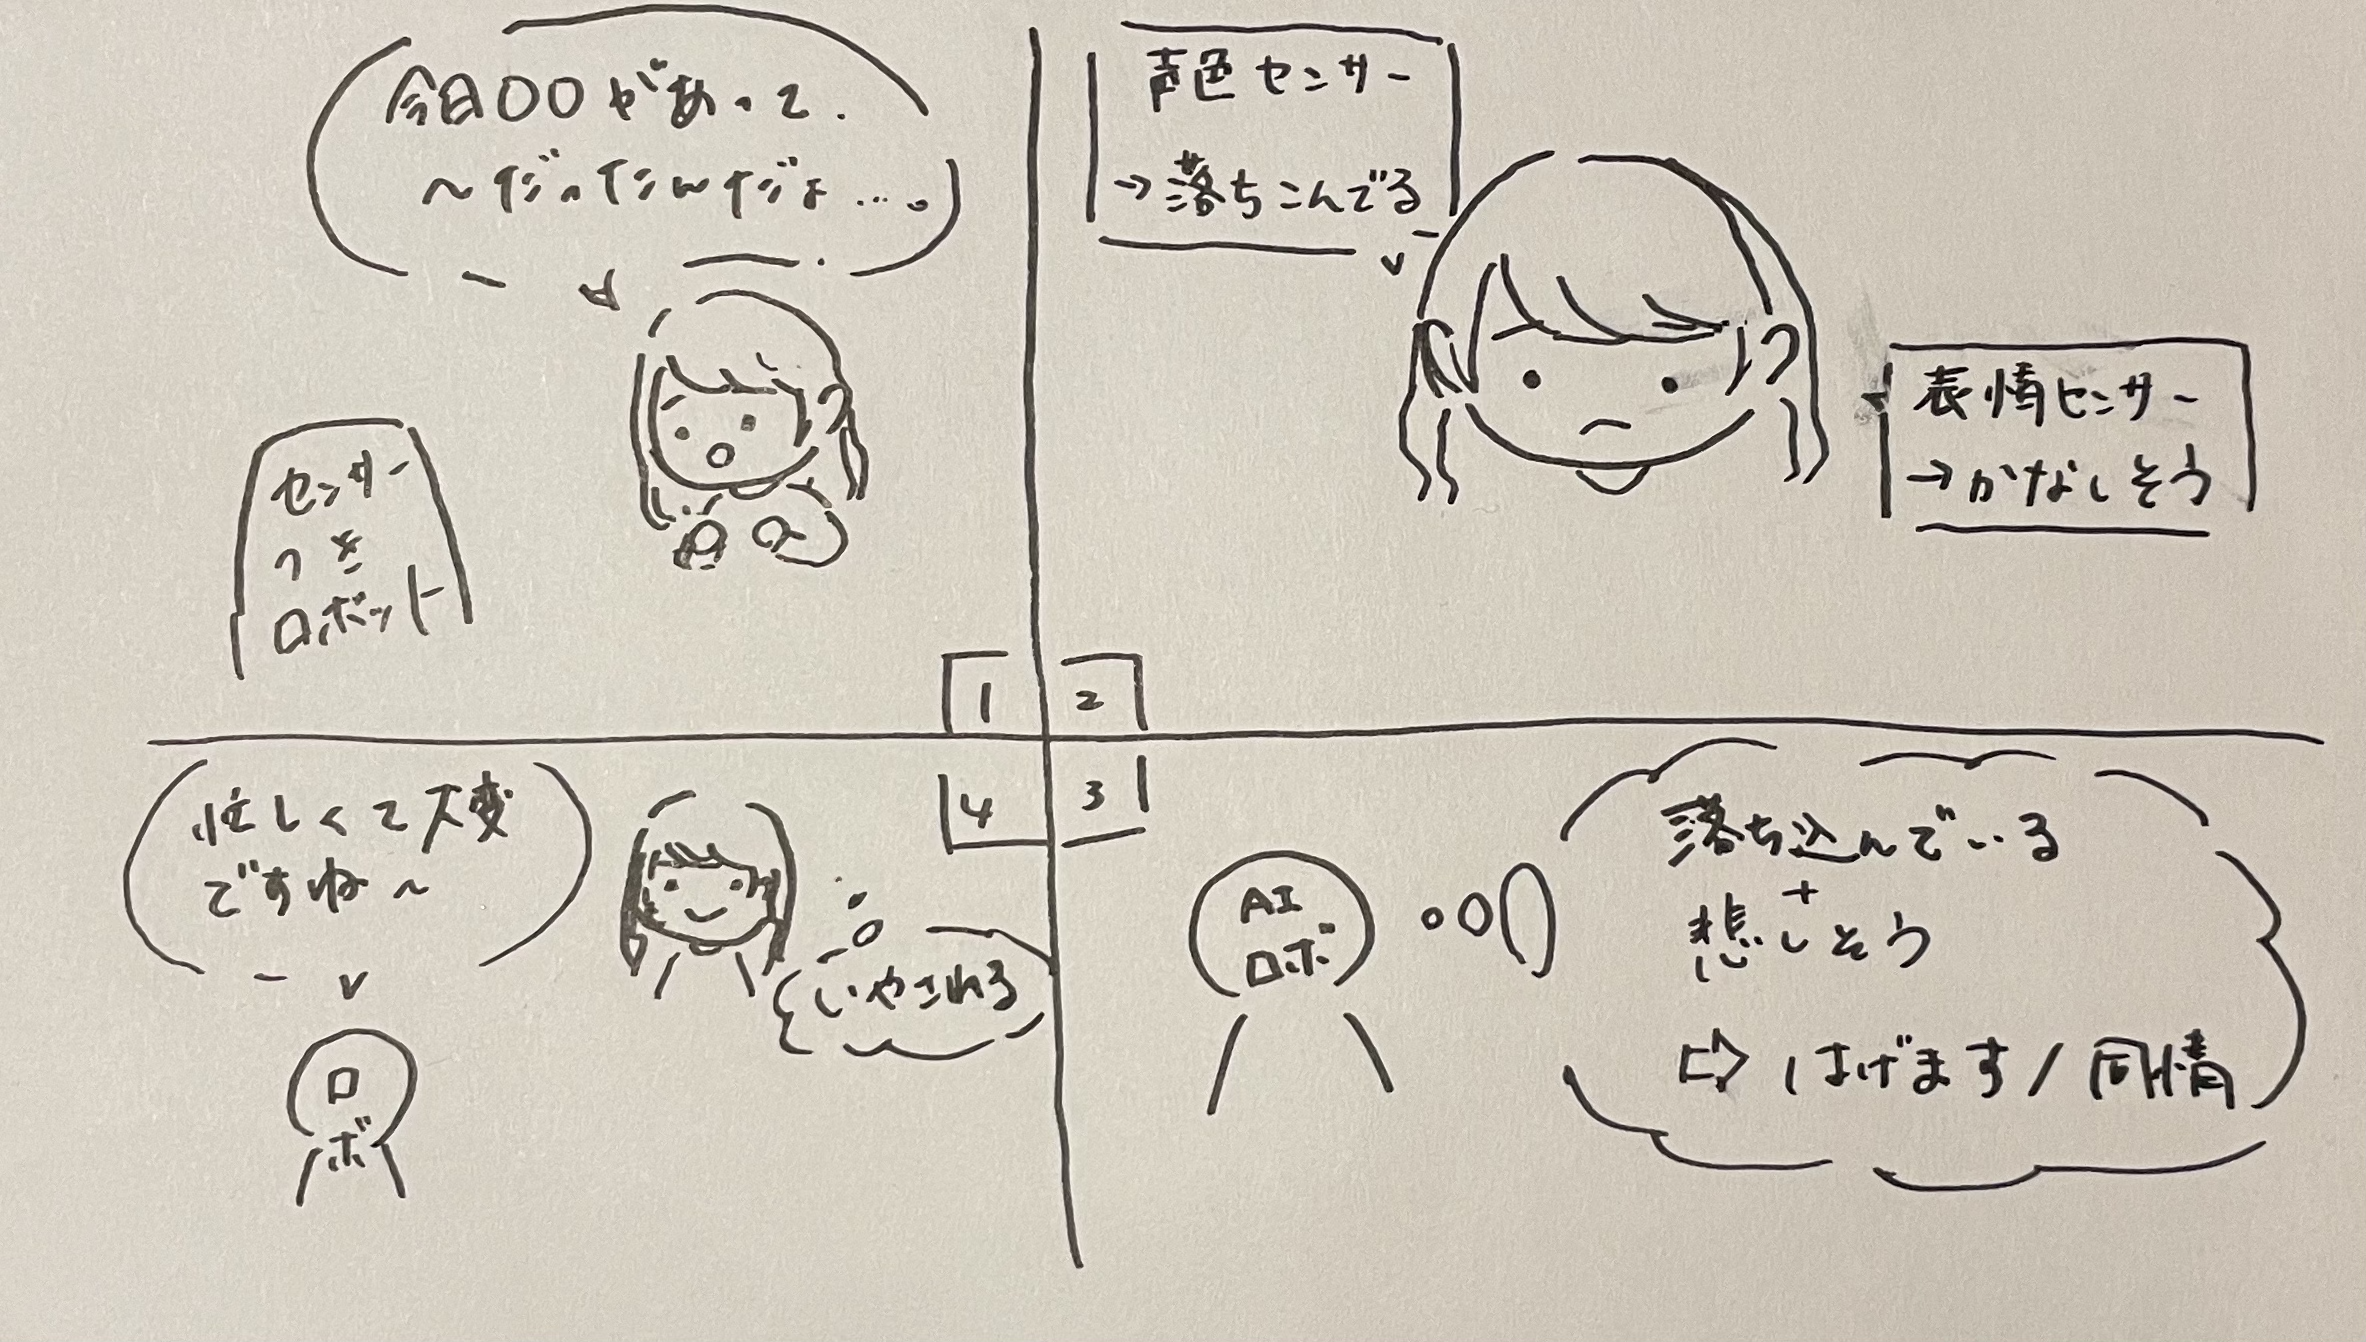 今日〇〇があって.
〜だったんだよ…。
センサー
つき
ロボット
1
声色センサー
→落ちこんでる
表情センサー
→かなしそう
2
3
AI
ロボ
落ち込んでいる
+
悲しそう
⇨はげます/同情
4
忙しくて大変
ですね〜
いやされる
ロ
ボ